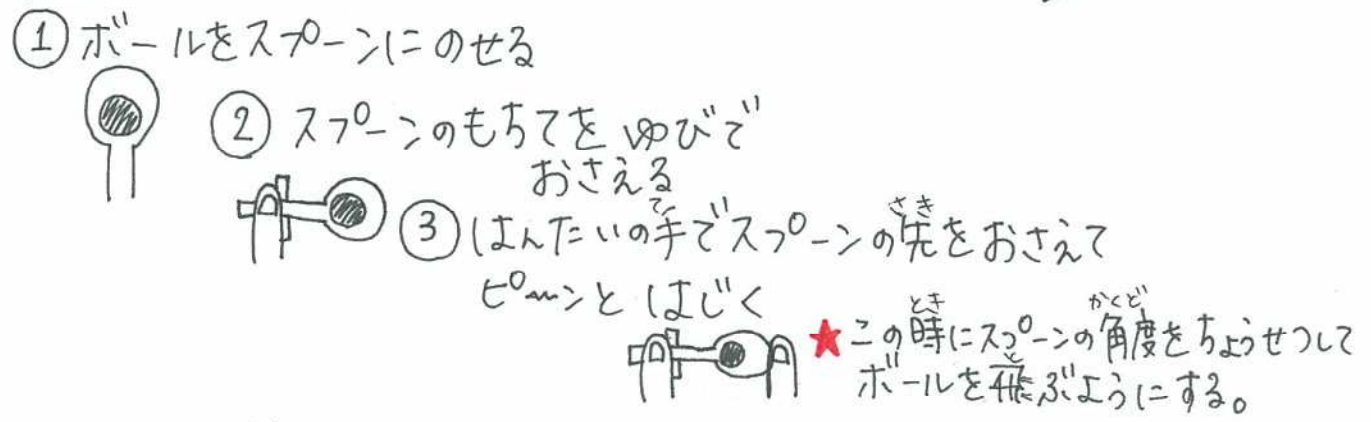 ① ボールをスプーンにのせる
② スプーンのもちてを ゆびで
おさえる
③ はんたいの手でスプーンの先をおさえて
て さき
ピーンと はじく
★この時にスプーンの角度をちょうせつして
とき かくど
ボールを飛ぶようにする。
と